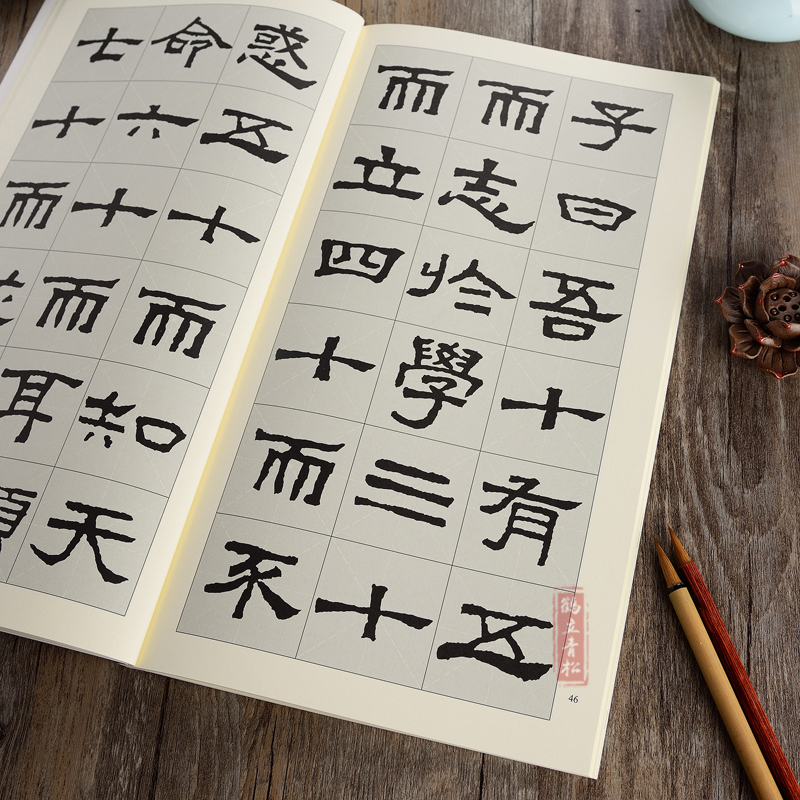 子曰吾十有五
而志於學三十
而立四十而不
惑五十而知天
命六十而耳順
七十而
鹤立青松
46